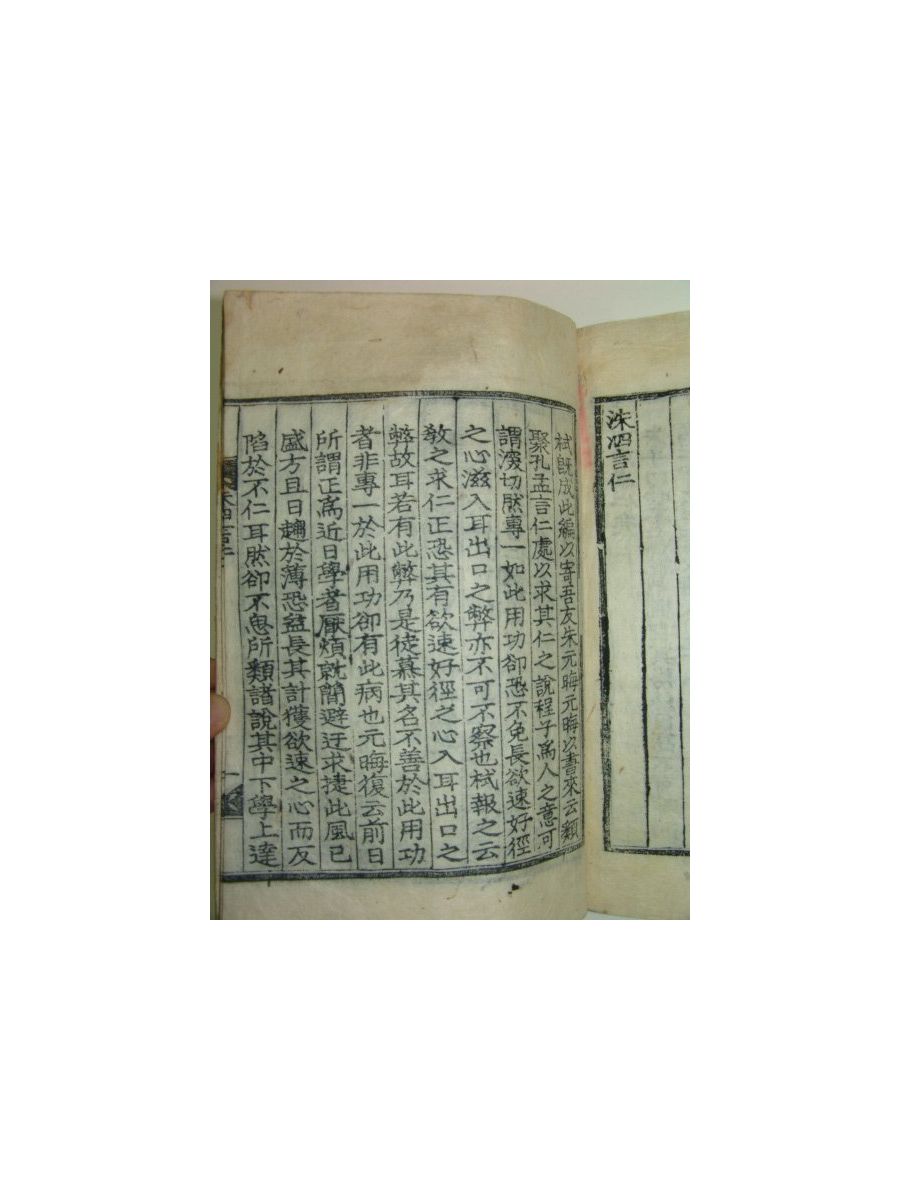 洙泗言仁
栻旣成此編以寄吾友朱元晦元晦以書來云類
聚孔孟言仁處以求其仁之說程子爲人之意可
謂深切然專一如此用功卻恐不免長欲速好徑
之心滋入耳出口之弊亦不可不察也栻報之云
敎之求仁正恐其有欲速好徑之心入耳出口之
弊故耳若有此弊乃是徒慕其名不善於此用功
者非專一於此用功卻有此病也元晦復云前日
所謂正爲近日學者厭煩就簡避迂求捷此風已
盛方且日趨於薄恐益長其計獲欲速之心而反
陷於不仁耳然卻不思所類諸說其中下學上達